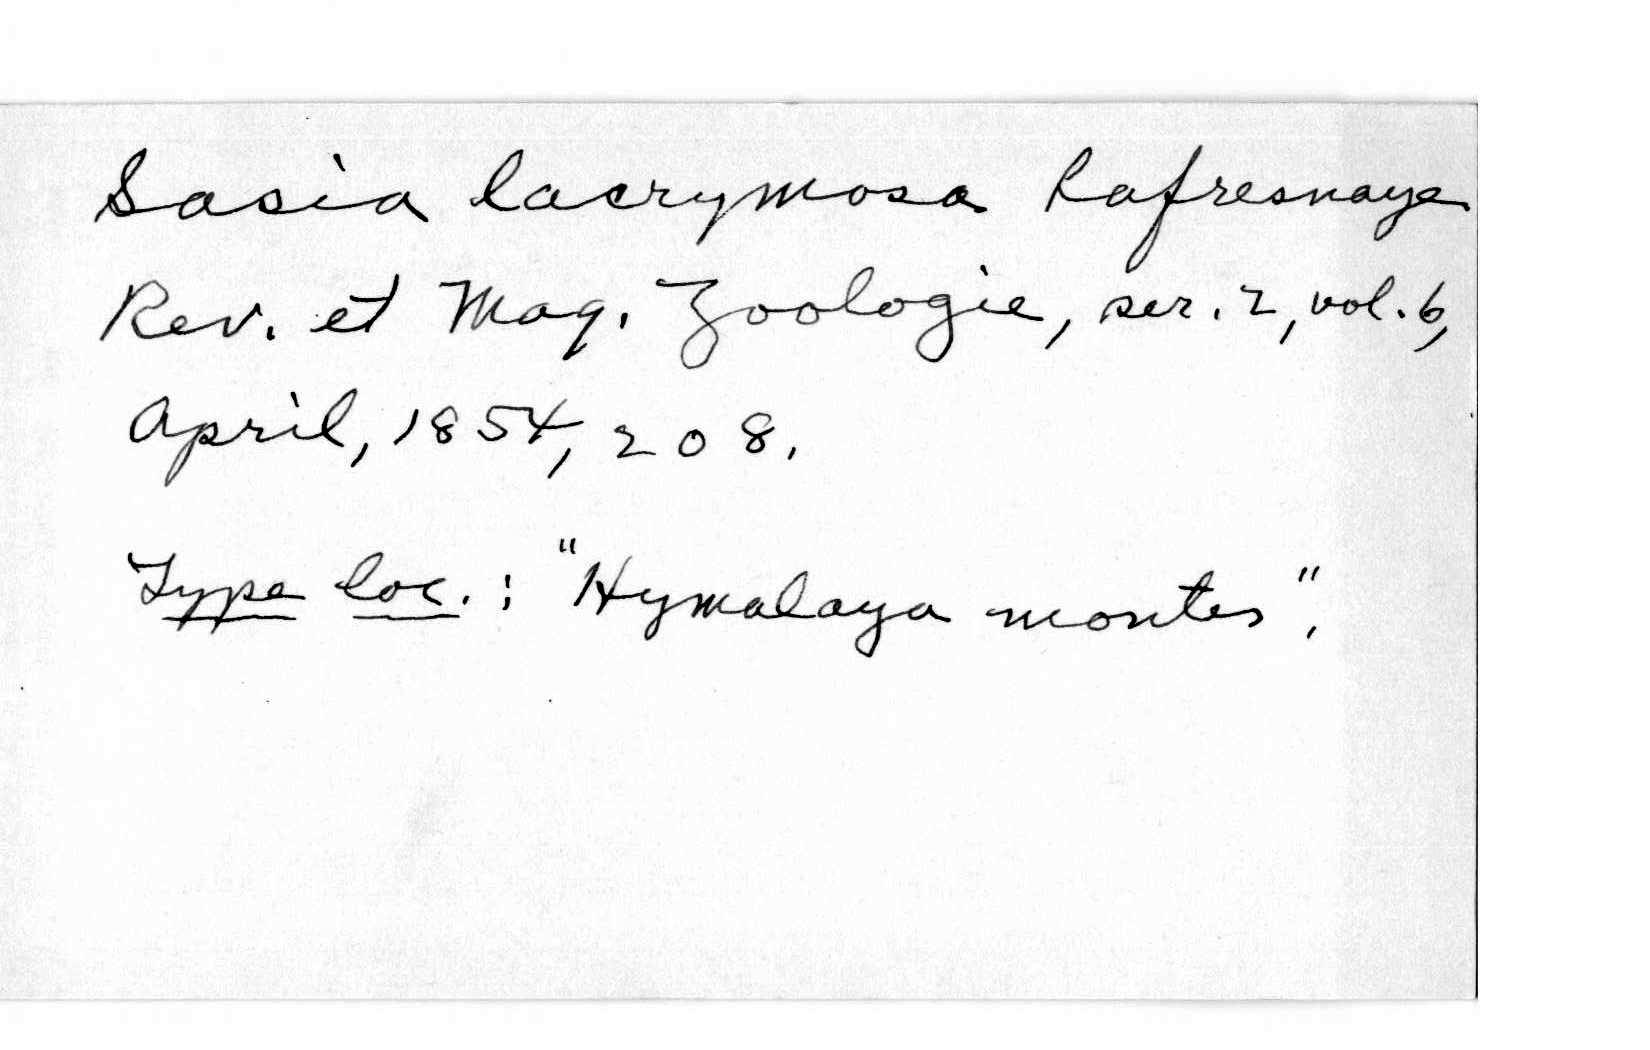 Sasia lacrymosa Lafresnaye
Rev. et Mag. Zoologie, ser. 2, vol. 6,
April, 1854, 208.
Type loc. : "Hymalaya montes",